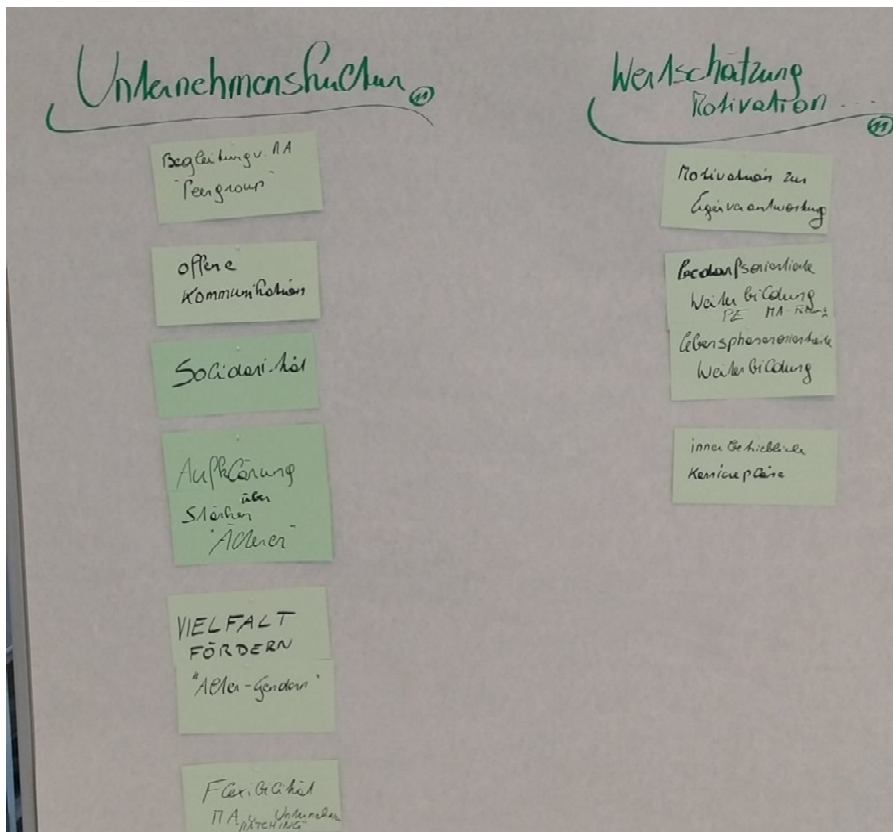 Unternehmenskultur 11
Begleitung v. MA
"Peergroup"
offene
Kommunikation
Solidarität
Aufklärung
über
Stärken
"Älterer"
VIELFALT
FÖRDERN
"Alter-Gendern"
Flexibilität
MA Unternehmen
"MATCHING"
Wertschätzung
Motivation ...
11
Motivation zur
Eigenverantwortung
bedarfsorientierte
Weiterbildung
PE MA-
lebensphasenorientierte
Weiterbildung
innerbetriebliche
Karrierepläne